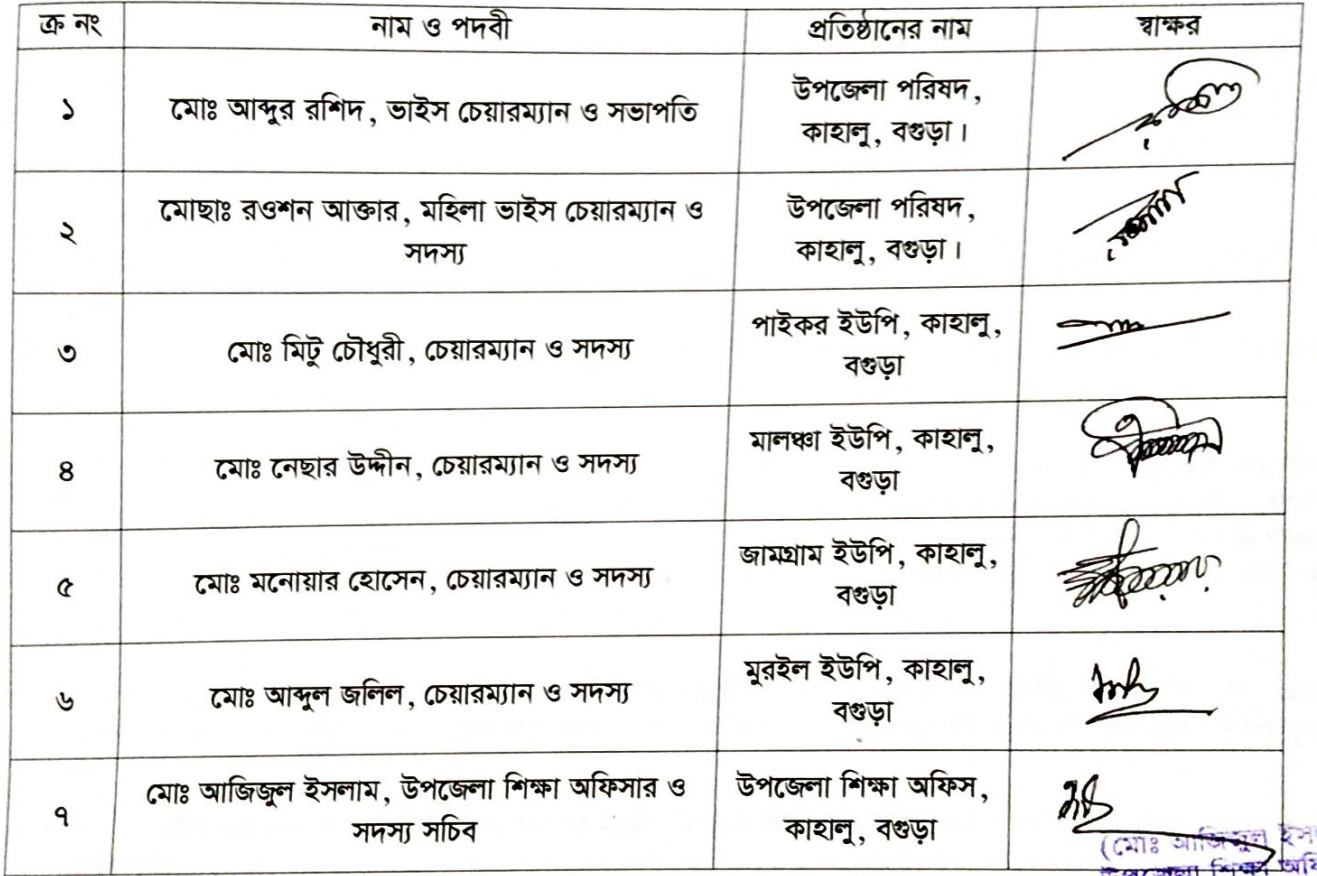 ক্র নং নাম ও পদবী প্রতিষ্ঠানের নাম স্বাক্ষর
১ মোঃ আব্দুর রশিদ, ভাইস চেয়ারম্যান ও সভাপতি উপজেলা পরিষদ,
কাহালু, বগুড়া।
২ মোছাঃ রওশন আক্তার, মহিলা ভাইস চেয়ারম্যান ও
সদস্য
উপজেলা পরিষদ,
কাহালু, বগুড়া।
৩ মোঃ মিটু চৌধুরী, চেয়ারম্যান ও সদস্য পাইকর ইউপি, কাহালু,
বগুড়া
৪ মোঃ নেছার উদ্দীন, চেয়ারম্যান ও সদস্য মালঞ্চা ইউপি, কাহালু,
বগুড়া
৫ মোঃ মনোয়ার হোসেন, চেয়ারম্যান ও সদস্য জামগ্রাম ইউপি, কাহালু,
বগুড়া
৬ মোঃ আব্দুল জলিল, চেয়ারম্যান ও সদস্য মুরইল ইউপি, কাহালু,
বগুড়া
৭ মোঃ আজিজুল ইসলাম, উপজেলা শিক্ষা অফিসার ও
সদস্য সচিব
উপজেলা শিক্ষা অফিস,
কাহালু, বগুড়া
(মোঃ আজিজুল
উপজেলা শিক্ষা